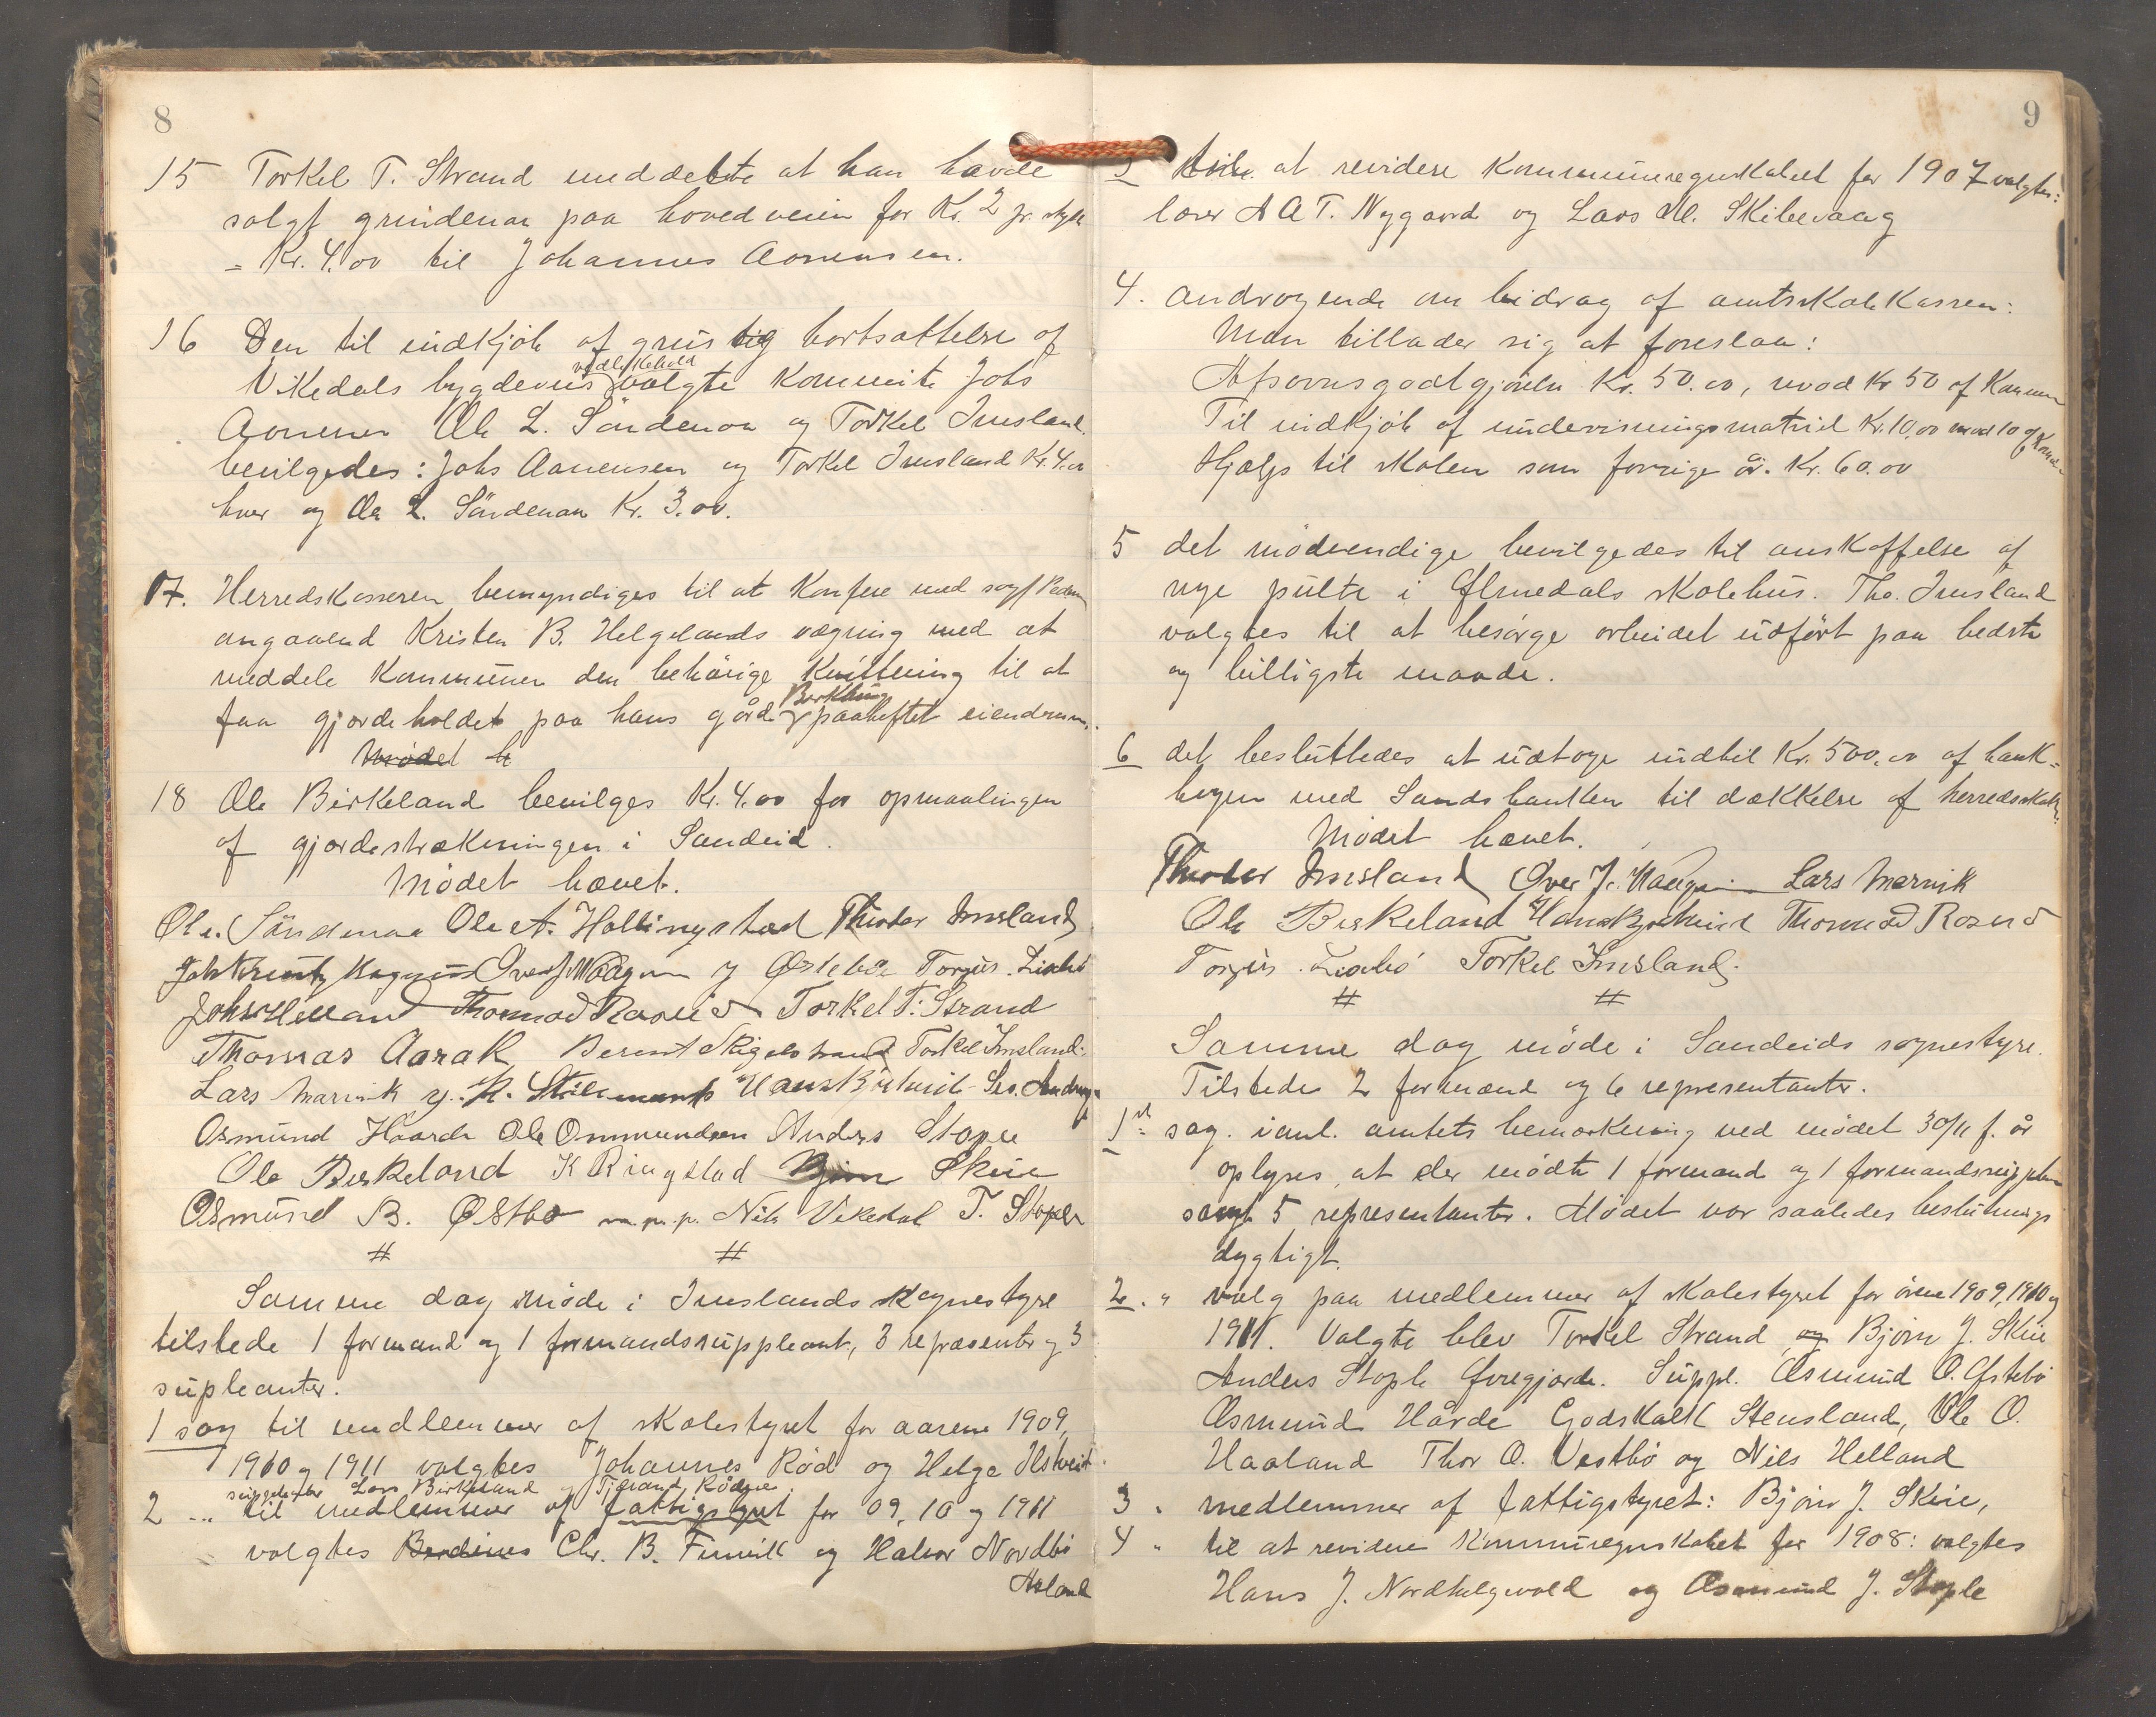 8
15 Torkel T. Strand meddelte at han havde
solgt grinderne paa hovedveien for Kr. 2 pr. stykke
= Kr. 4.00 til Johannes Aonensen.
16 Den til indkjöb af grus og bortsættelse af
Vikedals bygdeveis vedlikehold valgte Kommite Johs
Aonensen Ole L. Söndenaa og Torkel Imsland
bevilgedes: Johs Aanensen og Torkel Imsland Kr. 4.00
hver og Ole L. Söndenaa Kr. 3.00.
17. Herredskasseren bemyndiges til at Konfere med sagf.
angaaend Kristen B. Helgelands vægring med at
meddele Kommunen den behörige Kvittering til at
faa gjordeholdet paa hans gård Berkhing paaheftet eiendommen.
Mödet h
18 Ole Birkeland bevilges Kr. 4.00 for opmaalingen
af gjordestrækningen i Sandeid.
Mödet hævet.
Ole. Söndenaa Ole A. Hallingstad Thodor Imsland
Torgius Lixbö
Johs Helland Thormod Roseid Torkel T. Strand
Thomas Aarak Berent Skigelstrand Torkel Imsland
Lars Marvik Hans Bjerkveit
Osmund Haarde Ole Ommundsen Anders Stople
Ole Birkeland K Ringstad Bjørn Skeie
Osmund B. Østbø m.p.p. Nils Vikedal T. Stople
# #
Samme dag möde i Imslands sognestyre
tilstede 1 formand og 1 formandssuppleant, 3 repræsenter og 3
supleanter.
1 sag til medlemmer af skolestyret for aarene 1909,
1910 og 1911 valgtes Johannes Röd og Helge Ilstveit.
suppleanter Lars Birkeland og Tjerand Rödne
2 " til medlemmer af fattigstyret for 09, 10 og 1911
valgtes Chr. B. Fimvik og Halvor Nordbö
Aaland
9
3 til at revidere Kommuneregnskabet for 1907 valgtes:
lærer A. T. Nygaard og Lars M. Skibevaag
4. Andragende om bidrag af amtsskolekassen:
Man tillader sig at foreslaa:
Afsavnsgodtgjörelse Kr. 50.00, mod Kr 50 af Kommunen
Til indkjöb af undervisningsmatriel Kr. 10.00 mod 10 af Komm
Hjælp til skolen som forrige år. Kr. 60.00
5 det nödvendige bevilgedes til anskaffelse af
nye pulte i Ølmedals skolehus. Tho. Imsland
valgtes til at besörge arbeidet udfört paa bedste
og billigste maade.
6 det besluttedes at udtage indtil Kr. 500.00 af bank-
bogen med Sandsbanken til dækkelse af herredsskat.
Mödet hævet.
Thodor Imsland Over J. Haugen Lars Marvik
Ole Birkeland Hans Bjerkveit Thormod Roseid
Torgius Lixbö Torkel Imsland.
# #
Samme dag möde i Sandeids sognestyre.
Tilstede 2 formænd og 6 representanter.
1st sag. i anl. amtets bemerkning ved mödet 30/11 f. år
oplyses, at der mödte 1 formand og 1 formandssupplean
samt 5 representanter. Mödet var saaledes beslutnings
dygtigt.
2. " valg paa medlemmer af skolestyret for årene 1909, 1910 og
1911. Valgte blev Torkel Strand og Bjørn J. Skeie
Anders Stople Øvregjorde. Suppl. Osmund O. Østebö
Osmund Hårde Godskalk Stensland, Ole O.
Haaland Thor O. Vestbö og Nils Helland
3 " medlemmer af fattigstyret: Bjørn J. Skeie,
4 " til at revidere Kommuregnskabet for 1908: valgtes
Hans J. Nordhelgevold og Osmund J. Stople